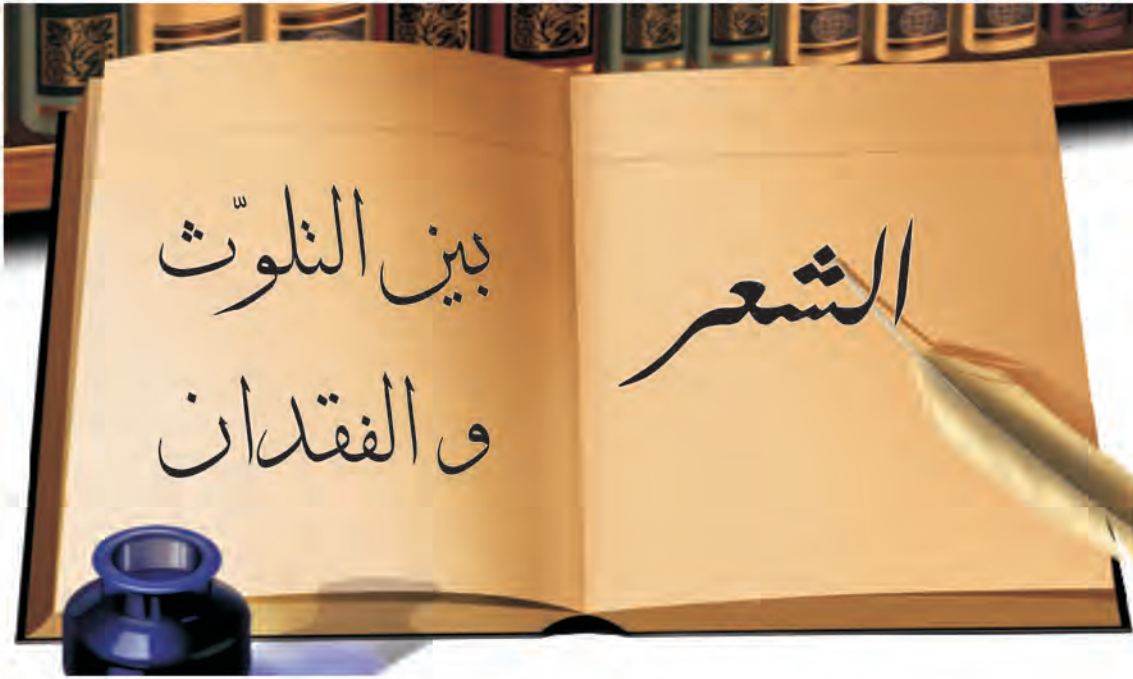 الشعر
بين التلوّث
و الفقدان